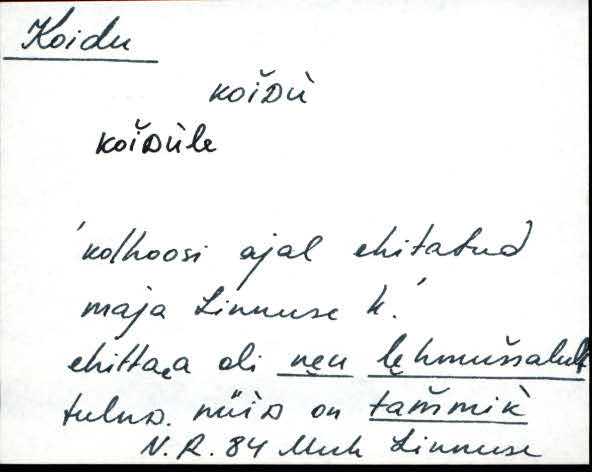 Koidu
koǐᴅù
koǐᴅùle
'kolhoosi ajal ehitatud
maja Linnuse k.'
ehittaja oli nęu lęhmuššalult
tulnᴅ. nüiᴅ on tam̆mik̀
N. R. 84 Muh Linnuse